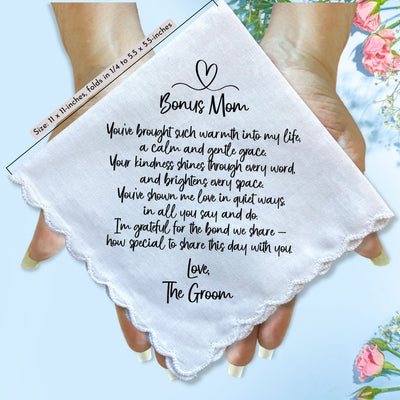 Size: 11 x 11-inches, folds in 1/4 to 5.5 x 5.5-inches
Bonus Mom
You've brought such warmth into my life,
a calm and gentle grace.
Your kindness shines through every word,
and brightens every space.
You've shown me love in quiet ways,
in all you say and do.
I'm grateful for the bond we share –
how special to share this day with you.
Love,
The Groom